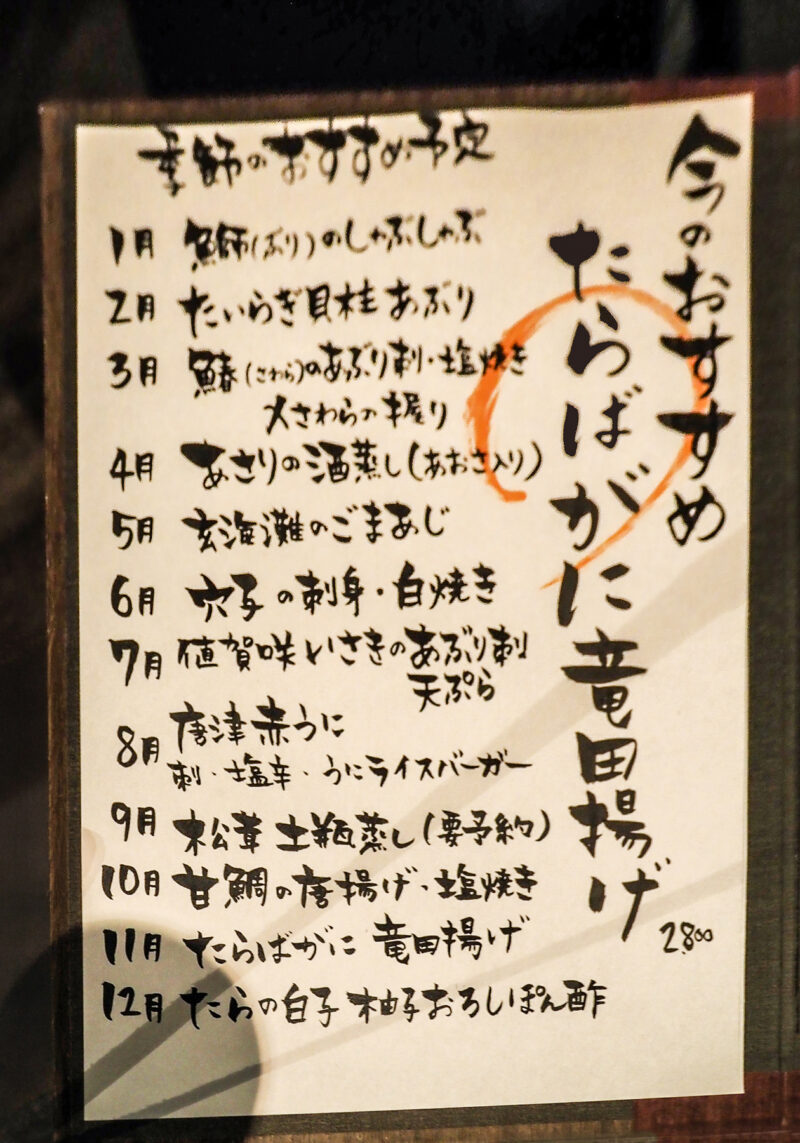 今のおすすめ
たらばがに竜田揚げ
2.800
季節のおすすめ予定
1月 鰤(ぶり)のしゃぶしゃぶ
2月 たいらぎ貝柱 あぶり
3月 鰆(さわら)のあぶり刺・塩焼き
大さわらの握り
4月 あさりの酒蒸し(あおさ入り)
5月 玄海灘のごまあじ
6月 穴子の刺身・白焼き
7月 値賀咲いさきのあぶり刺
天ぷら
8月 唐津赤うに
刺・塩辛・うにライスバーガー
9月 松茸 土瓶蒸し(要予約)
10月 甘鯛の唐揚げ・塩焼き
11月 たらばがに 竜田揚げ
12月 たらの白子 柚子おろしぽん酢